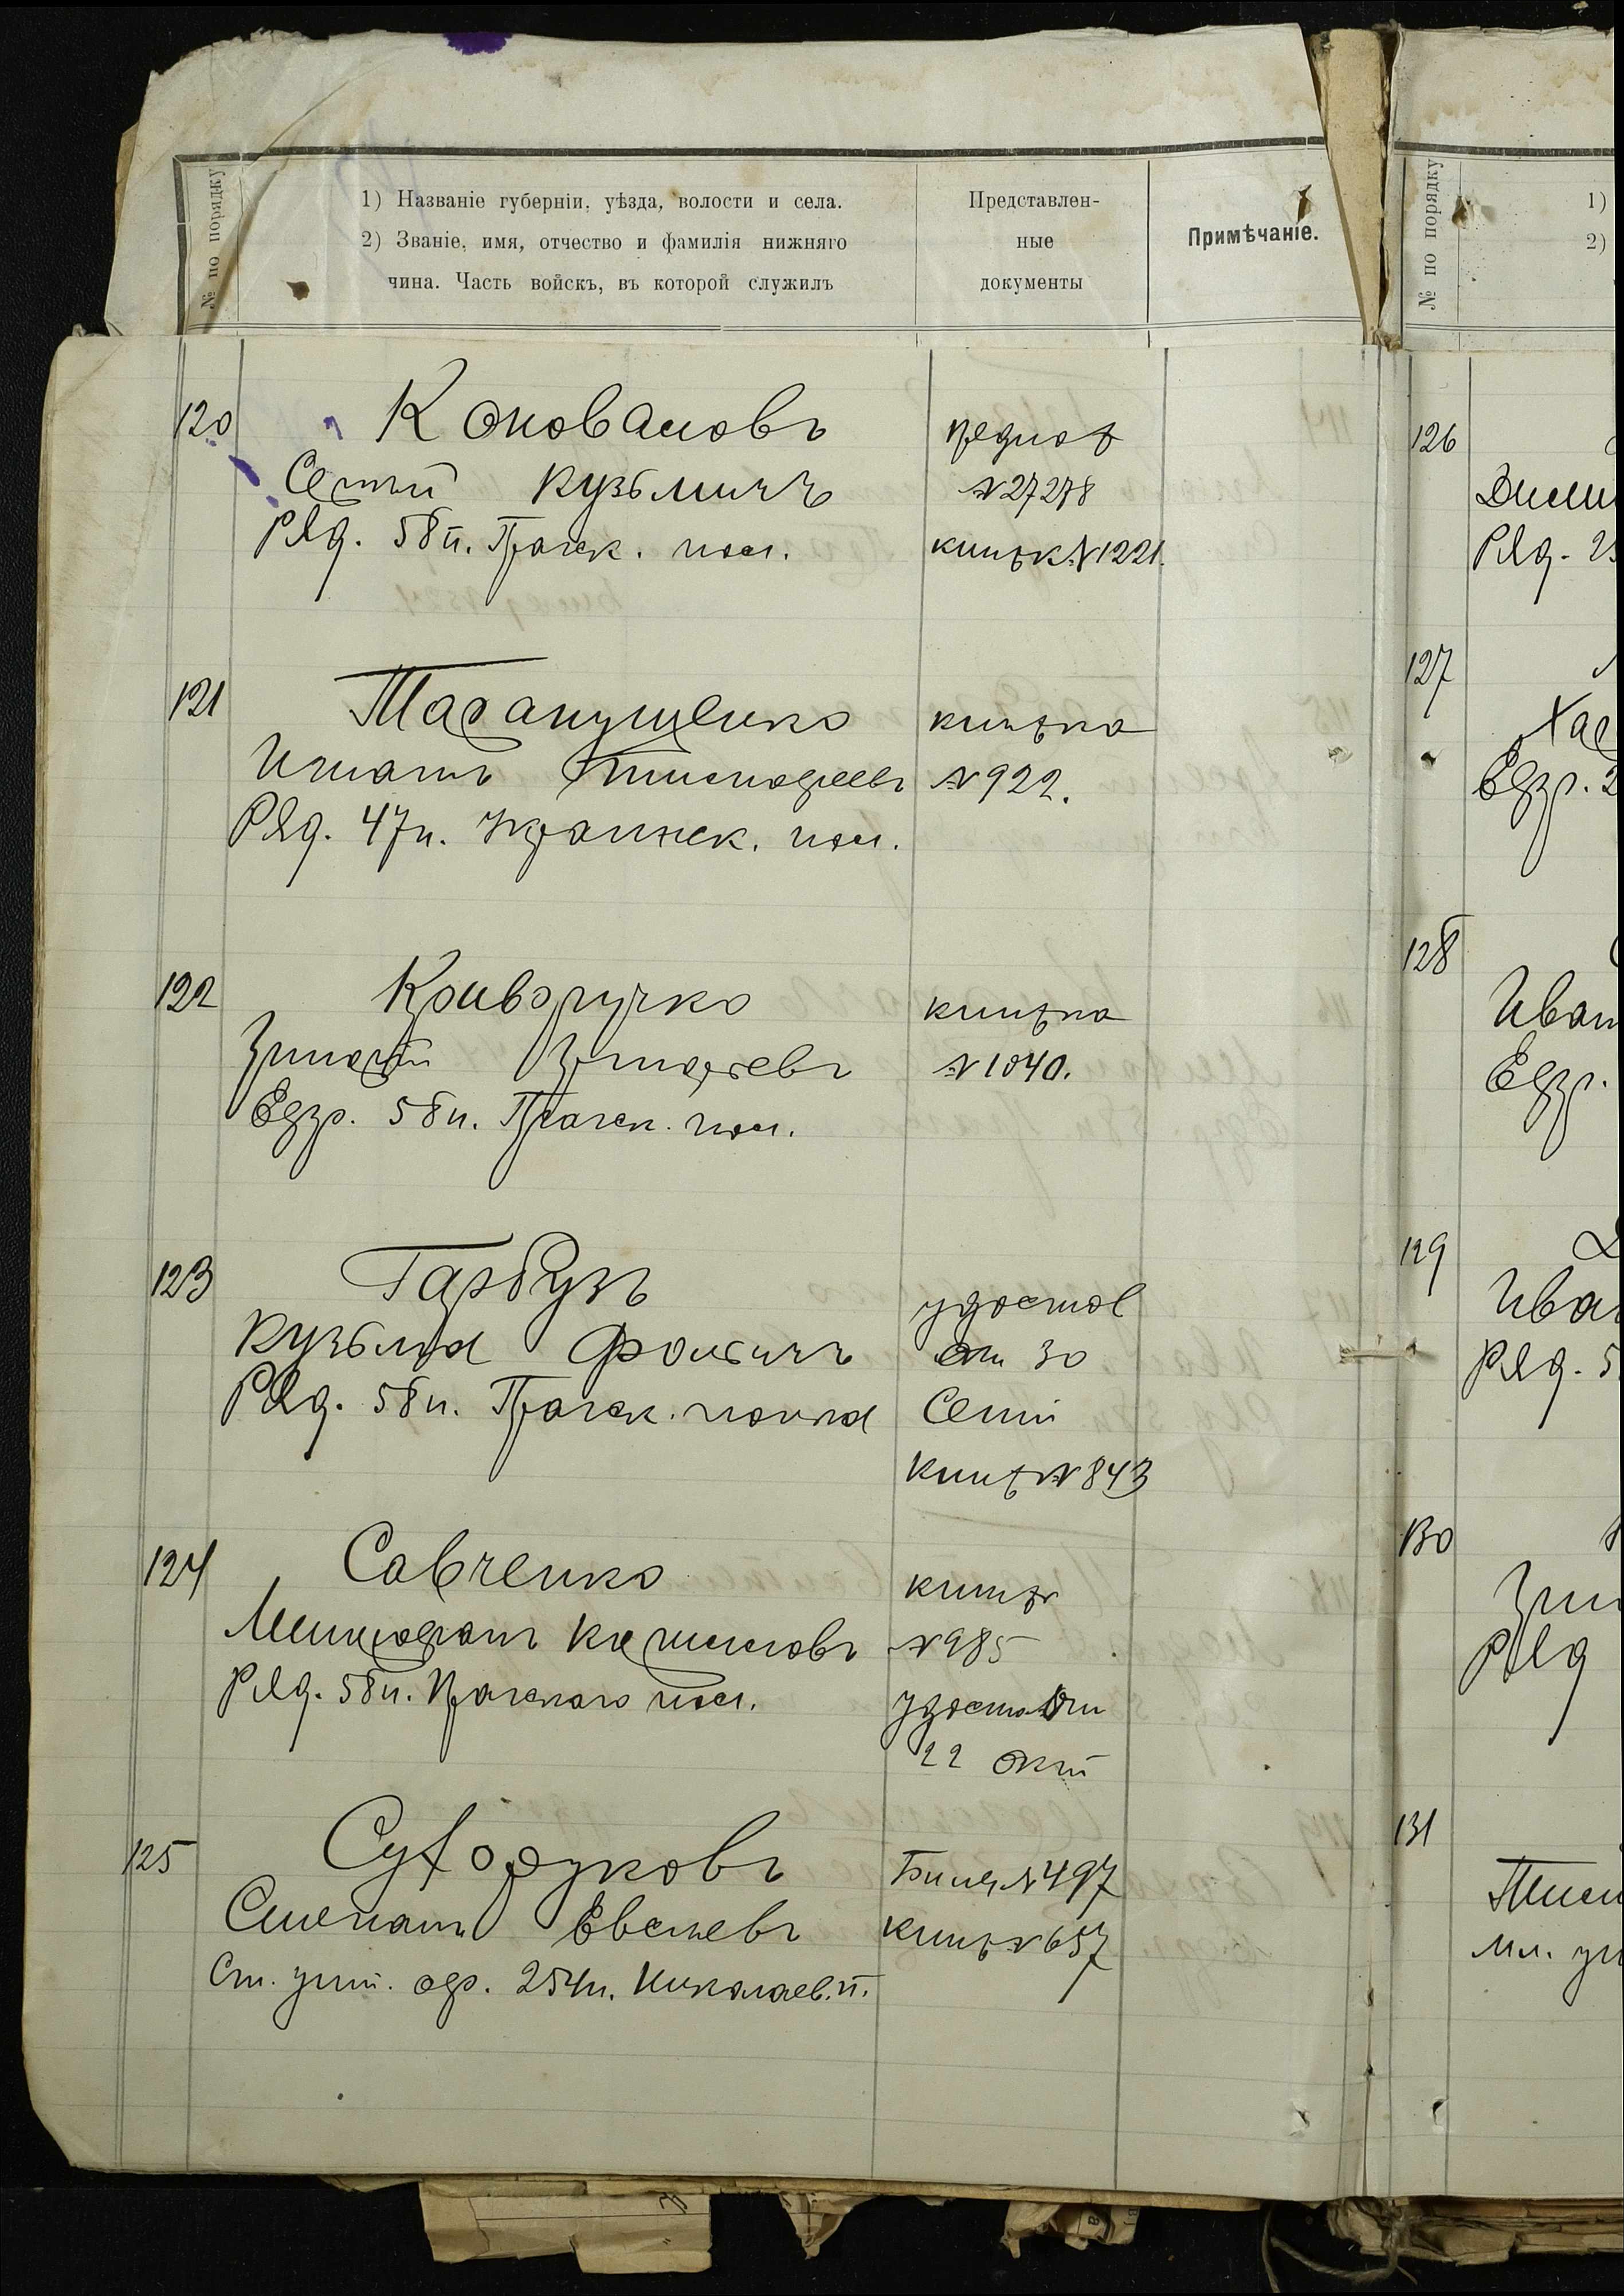 № по порядку
1) Названіе губерніи, уѣзда, волости и села.
2) Званіе, имя, отчество и фамилія нижняго
чина. Часть войскъ, въ которой служилъ
Представлен-
ные
документы
Примѣчаніе.
120
Коноваловъ
Сергѣй Кузьмичъ
Ряд. 58 п. Пражск. пол.
№ 27278
книжк № 1221.
121
Таранущенко
Игнатъ Тимофеевъ
Ряд. 47 п. Украинск. пол.
книжка
№ 922.
122
Криворучко
Григорій Григорьевъ
Ефр. 58 п. Пражск. пол.
книжка
№ 1040.
123
Гарбузъ
Кузьма Фомичъ
Ряд. 58 п. Пражск. полка
удостов
от 30
Сент
книж № 843
124
Савченко
Митрофанъ
Ряд. 58 п. Пражскаго пол.
книж
№ 985
удостов от
22 окт
125
Сухоруковъ
Степанъ Евсеевъ
Ст. унт. оф. 254 п. Николаев. п.
Билет № 497
книж № 657
№ по порядку
1)
2)
126
Ряд.
127
Ефр. 2
128
Иван
Ефр.
129
Иван
Ряд. 5
130
Ряд
131
мл. ун